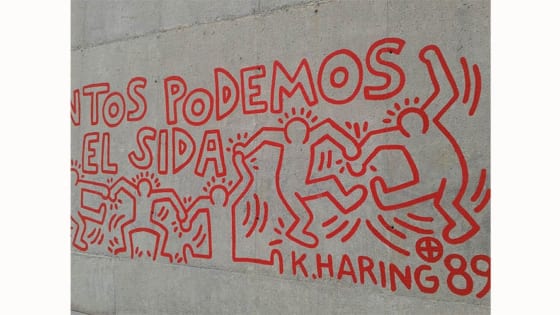 NTOS PODEMOS
EL SIDA
K.HARING 89